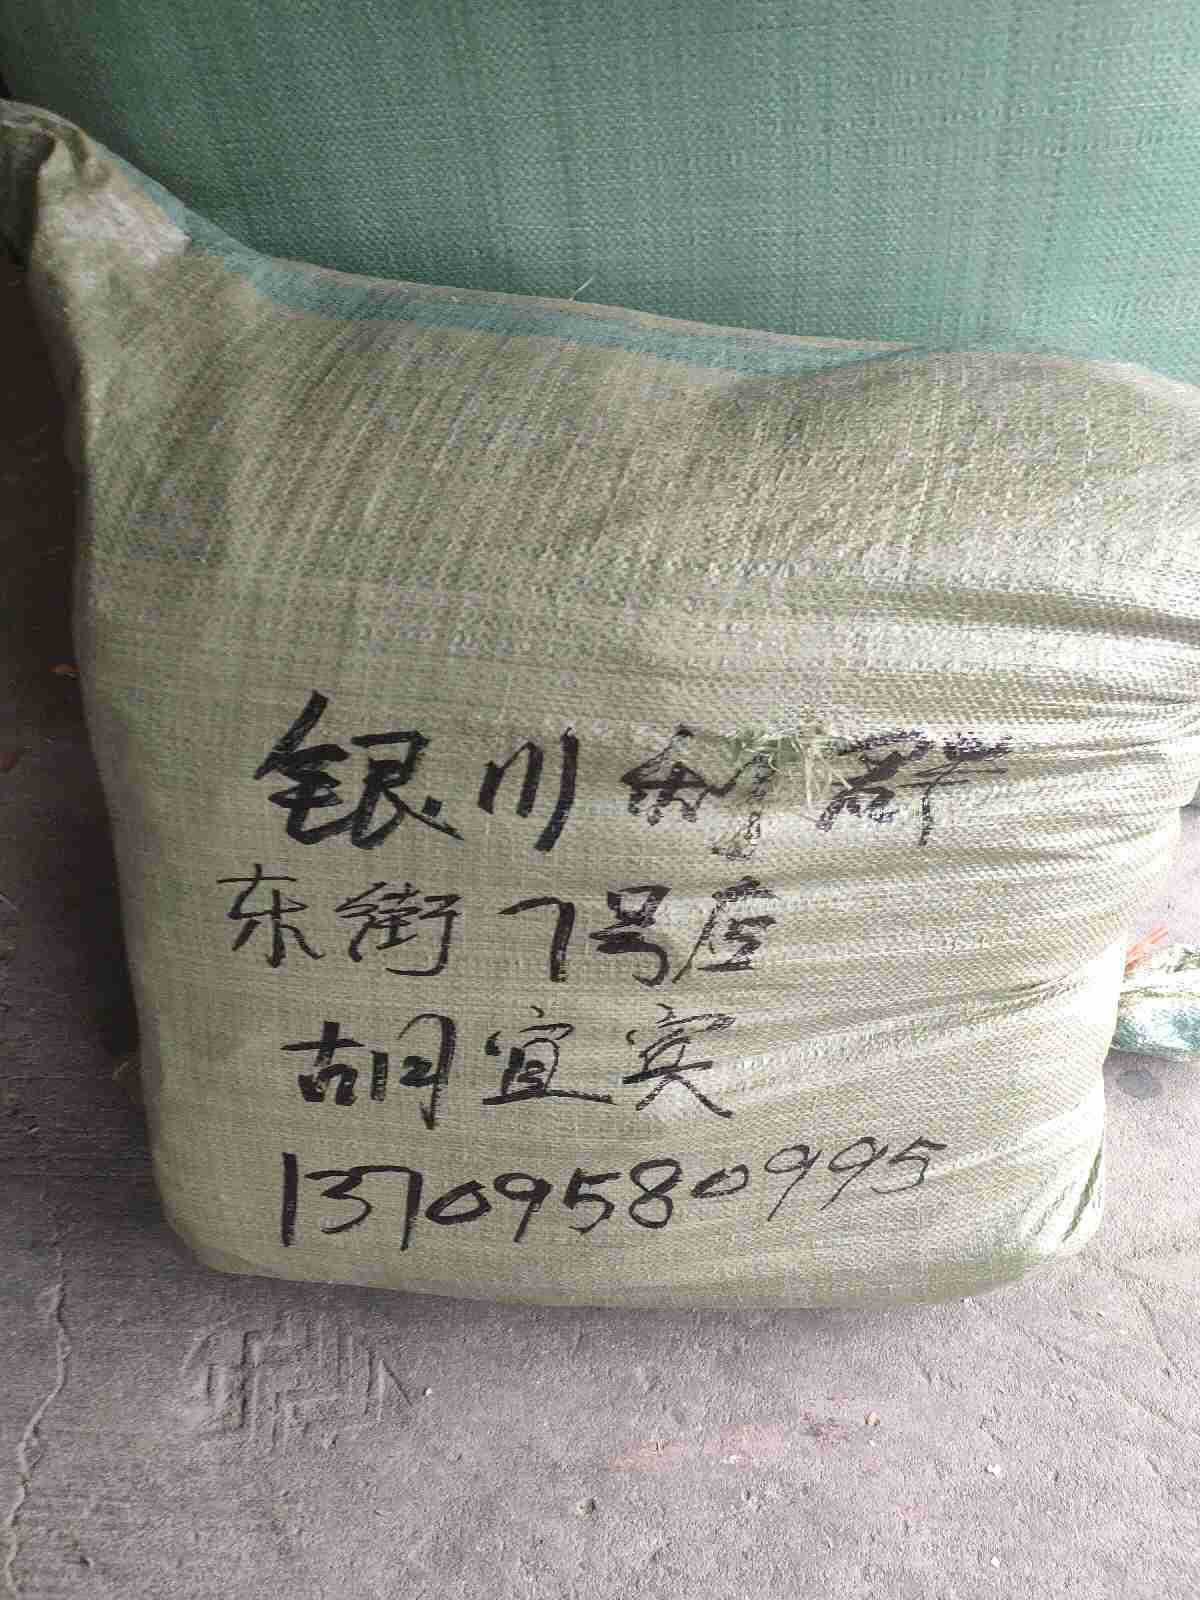 银川利群
东街7号店
胡宜宾
13709580995